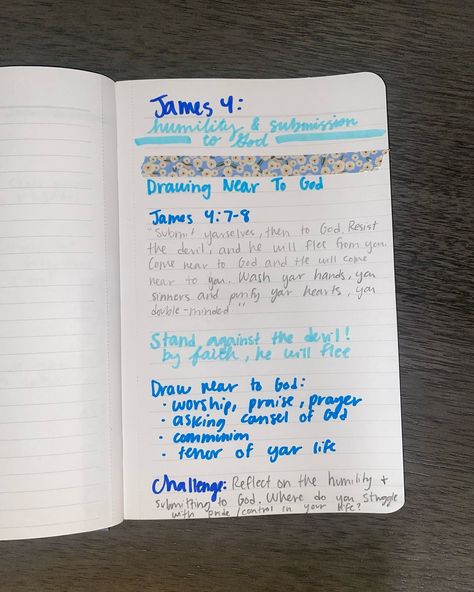 James 4:
humility & submission
to God
Drawing Near To God
James 4:7-8
"Submit yourselves, then to God. Resist
the devil, and he will flee from you.
Come near to God and He will come
near to you. Wash your hands, you
sinners and purify your hearts, you
double-minded."
Stand against the devil!
by faith, he will flee
Draw near to God:
• worship, praise, prayer
• asking cansel of God
• communion
• tenor of your life
Challenge: Reflect on the humility +
submitting to God. Where do you struggle
with pride/control in your life?